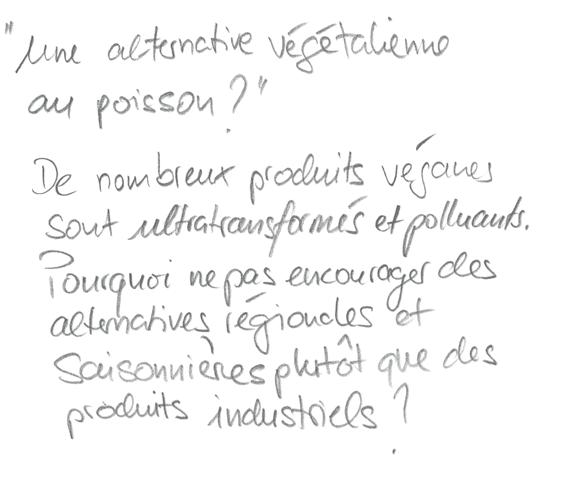 "Une alternative végétalienne
au poisson ?"
De nombreux produits véganes
sont ultratransformés et polluants.
Pourquoi ne pas encourager des
alternatives régionales et
saisonnières plutôt que des
produits industriels ?